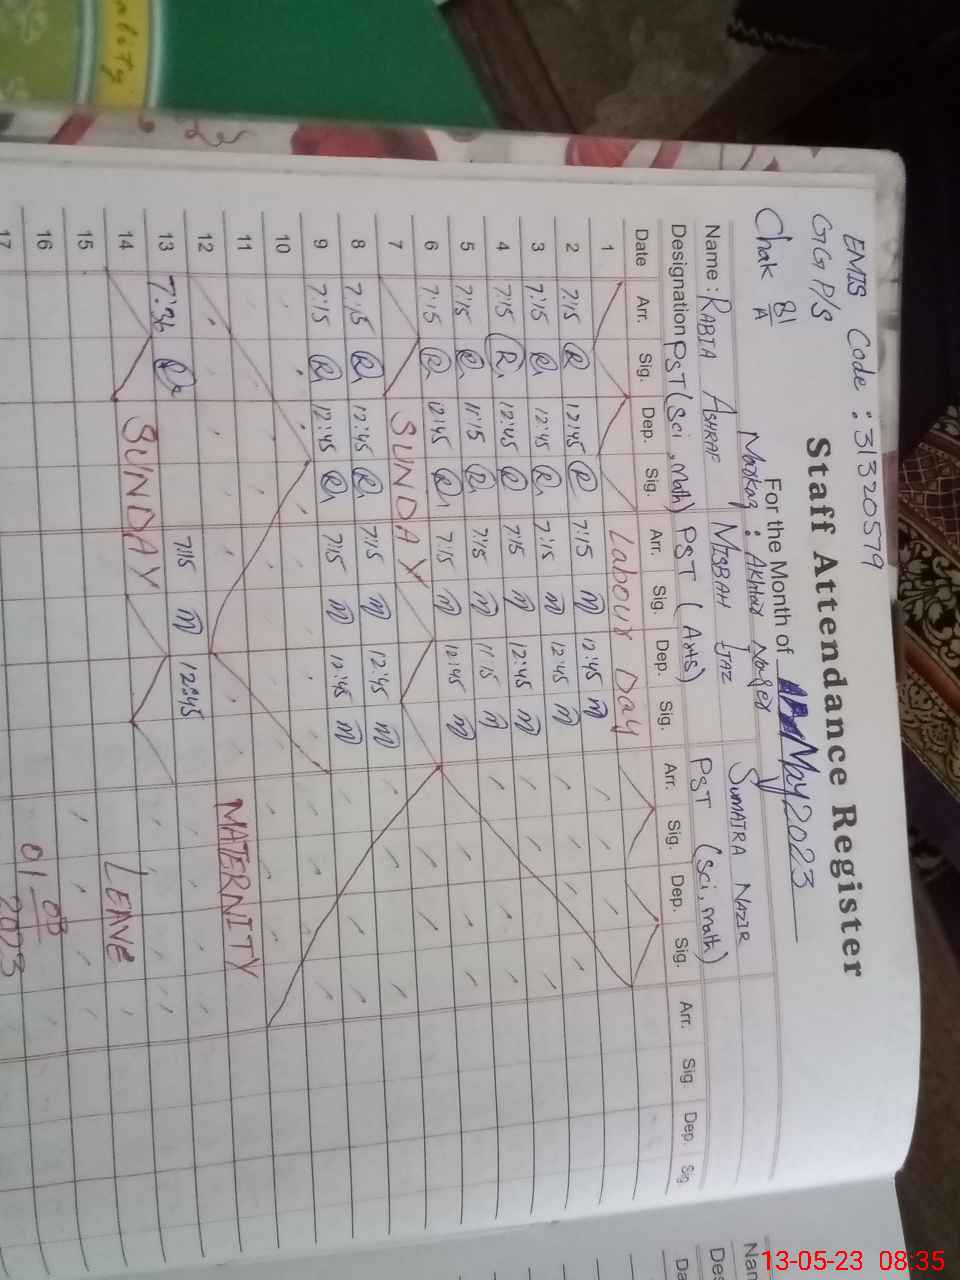 EMIS Code : 31320579
GGP/S
Chak 81/A
Staff Attendance Register
For the Month of May 2023
Markaz : Akhtar Nager
Name : RABIA ASHRAF MISBAH IJAZ SUMAIRA NAZIR
Designation PST (Sci, Math) PST (Arts) PST (Sci, math)
Date Arr. Sig. Dep. Sig. Arr. Sig. Dep. Sig. Arr. Sig. Dep. Sig. Arr. Sig. Dep. Sig.
1 Labour Day
2 7:15 R 12:45 R 7:15 m 12:45 m
3 7:15 R 12:45 R 7:15 m 12:45 m
4 7:15 R 12:45 R 7:15 m 12:45 m
5 7:15 R 11:15 R 7:15 m 11:15 m
6 7:15 R 12:45 R 7:15 m 12:45 m
7 SUNDAY
8 7:15 R 12:45 R 7:15 m 12:45 m
9 7:15 R 12:45 R 7:15 m 12:45 m
10
11 MATERNITY
12
13 7:36 R 7:15 m 12:45
14 SUNDAY LEAVE
15
16 01 - 03 2023
17
ality
Nam
Des
Da
13-05-23 08:35